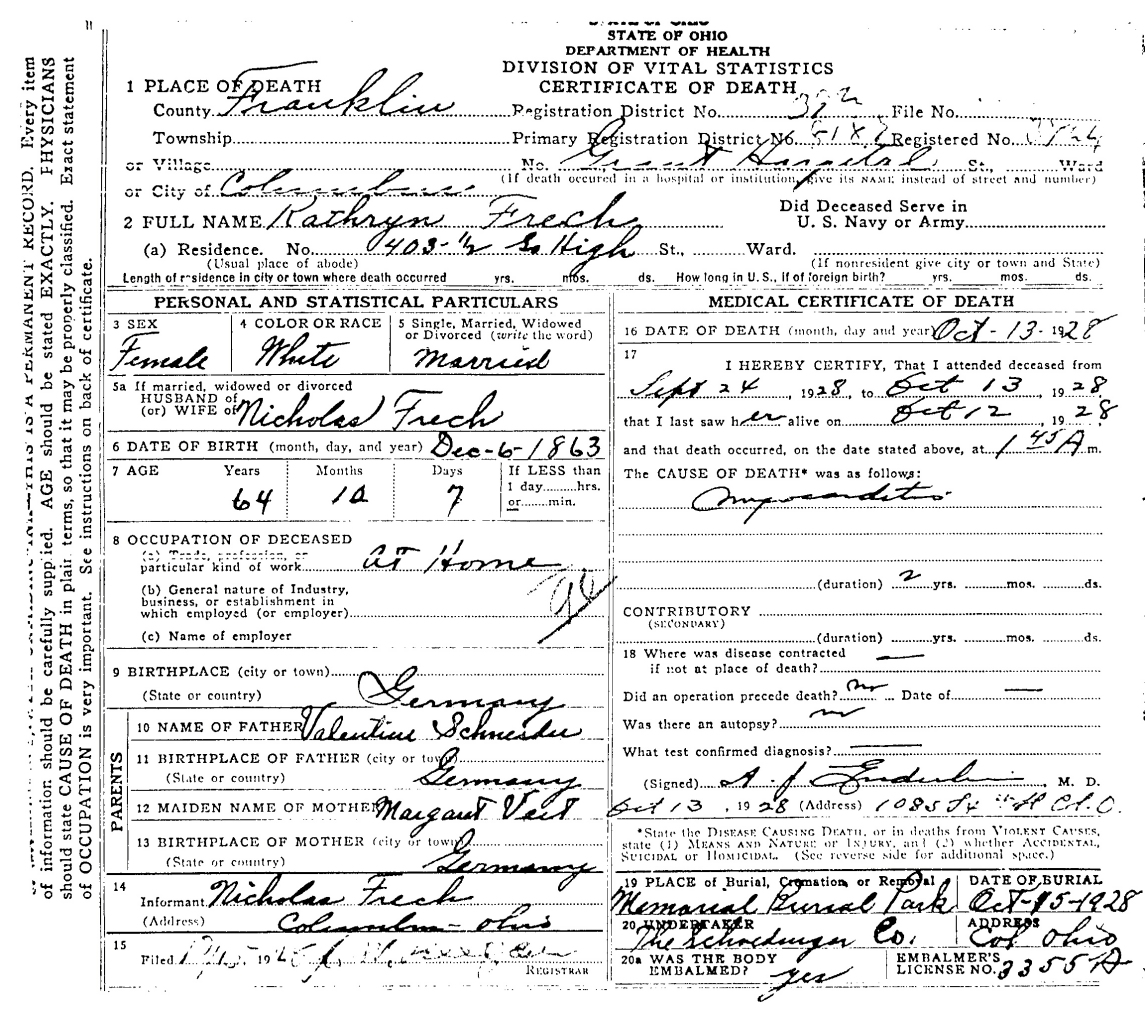 STATE OF OHIO
DEPARTMENT OF HEALTH
DIVISION OF VITAL STATISTICS
CERTIFICATE OF DEATH
1 PLACE OF DEATH
County Franklin Registration District No. File No.
Township Primary Registration District No. Registered No.
or Village No. Grant Hospital St., Ward
or City of Columbus (If death occured in a hospital or institution, give its NAME instead of street and number)
2 FULL NAME Kathryn Frech Did Deceased Serve in U. S. Navy or Army
(a) Residence. No. 403-½ So High St., Ward.
(Usual place of abode) (If nonresident give city or town and State)
Length of residence in city or town where death occurred yrs. mos. ds. How long in U.S., if of foreign birth? yrs. mos. ds.
PERSONAL AND STATISTICAL PARTICULARS
3 SEX 4 COLOR OR RACE 5 Single, Married, Widowed or Divorced (write the word)
Female White Married
5a If married, widowed or divorced
HUSBAND of
(or) WIFE of Nicholas Frech
6 DATE OF BIRTH (month, day, and year) Dec-6-1863
7 AGE Years Months Days If LESS than
1 day hrs.
or min.
64 10 7
8 OCCUPATION OF DECEASED
(a) Trade, profession, or
particular kind of work At Home
(b) General nature of Industry,
business, or establishment in
which employed (or employer)
(c) Name of employer
9 BIRTHPLACE (city or town)
(State or country) Germany
PARENTS
10 NAME OF FATHER Valentine Schneider
11 BIRTHPLACE OF FATHER (city or town)
(State or country) Germany
12 MAIDEN NAME OF MOTHER Margaret Veit
13 BIRTHPLACE OF MOTHER (city or town)
(State or country) Germany
14
Informant Nicholas Frech
(Address) Columbus - Ohio
15
Filed 192
REGISTRAR
MEDICAL CERTIFICATE OF DEATH
16 DATE OF DEATH (month, day and year) Oct-13-1928
17
I HEREBY CERTIFY, That I attended deceased from
Sept 24, 1928, to Oct 13, 1928
that I last saw her alive on Oct 12 1928
and that death occurred, on the date stated above, at 1 45 A m.
The CAUSE OF DEATH* was as follows:
Myocarditis
(duration) 2 yrs. mos. ds.
CONTRIBUTORY
(SECONDARY)
(duration) yrs. mos. ds.
18 Where was disease contracted
if not at place of death? —
Did an operation precede death? no Date of —
Was there an autopsy? no
What test confirmed diagnosis? —
(Signed) A. J. M. D.
Oct 13, 1928 (Address)
*State the DISEASE CAUSING DEATH, or in deaths from VIOLENT CAUSES,
state (1) MEANS AND NATURE OF INJURY, and (2) whether ACCIDENTAL,
SUICIDAL or HOMICIDAL. (See reverse side for additional space.)
19 PLACE of Burial, Cremation, or Removal DATE OF BURIAL
Memorial Burial Park Oct-15-1928
20 UNDERTAKER ADDRESS
The Schoedinger Co. Col Ohio
20a WAS THE BODY
EMBALMED? yes
EMBALMER'S
LICENSE NO. 3355A
THIS IS A PERMANENT RECORD. Every item
of information should be carefully supplied. AGE should be stated EXACTLY. PHYSICIANS
should state CAUSE OF DEATH in plain terms, so that it may be properly classified. Exact statement
of OCCUPATION is very important. See instructions on back of certificate.